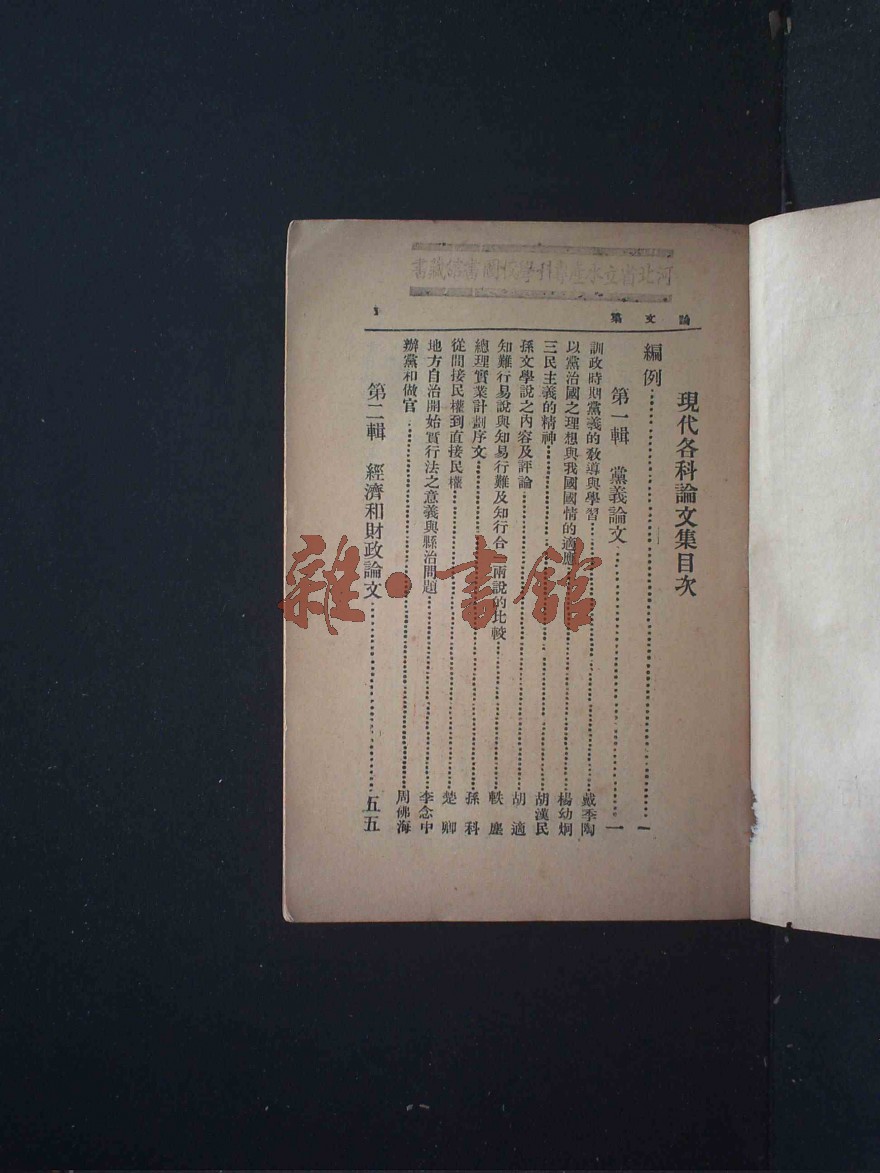 河北省立水產專科學校圖書館藏書
論文集 1
現代各科論文集目次
編例……一
第一輯 黨義論文……一
訓政時期黨義的教導與學習……戴季陶
以黨治國之理想與我國國情的適應……楊幼炯
三民主義的精神……胡漢民
孫文學說之內容及評論……胡適
知難行易說與知易行難及知行合一兩說的比較……軼塵
總理實業計劃序文……孫科
從間接民權到直接民權……楚卿
地方自治開始實行法之意義與縣治問題……李念中
辦黨和做官……周佛海
第二輯 經濟和財政論文……五五
雜·書館